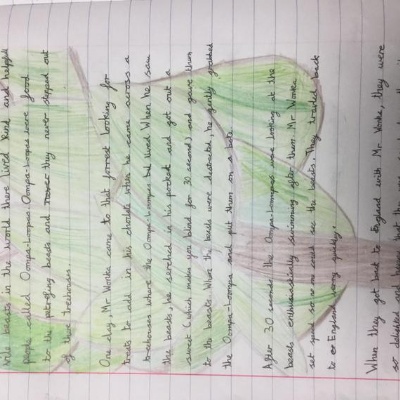 vile beasts in the world there lived kind and helpful
people called Oompa-Loompas. Oompa-Loompas were good
to the patrolling beasts and they never stepped out
of their treehouses.
One day, Mr Wonka came to that forrest looking for
treats to add in his choclate when he came across a
treehouses where the Oompa-Loompas lived. When he saw
the beasts, he serched in his pocket and got out a
sweet (which makes you blind for 30 seconds) and gave them
to the beasts. When the beasts were destracted, he gently grabbed
the Oompa-Loompas and put them on a
After 30 seconds, the Oompa-Loompas were looking at the
beasts enthusiastically swimming after them. Mr Wonka
set speed so no one could see the beasts, they traveled back
to England very quickly.
When they got back to England with Mr. Wonka, they were
so delighted and happy that they